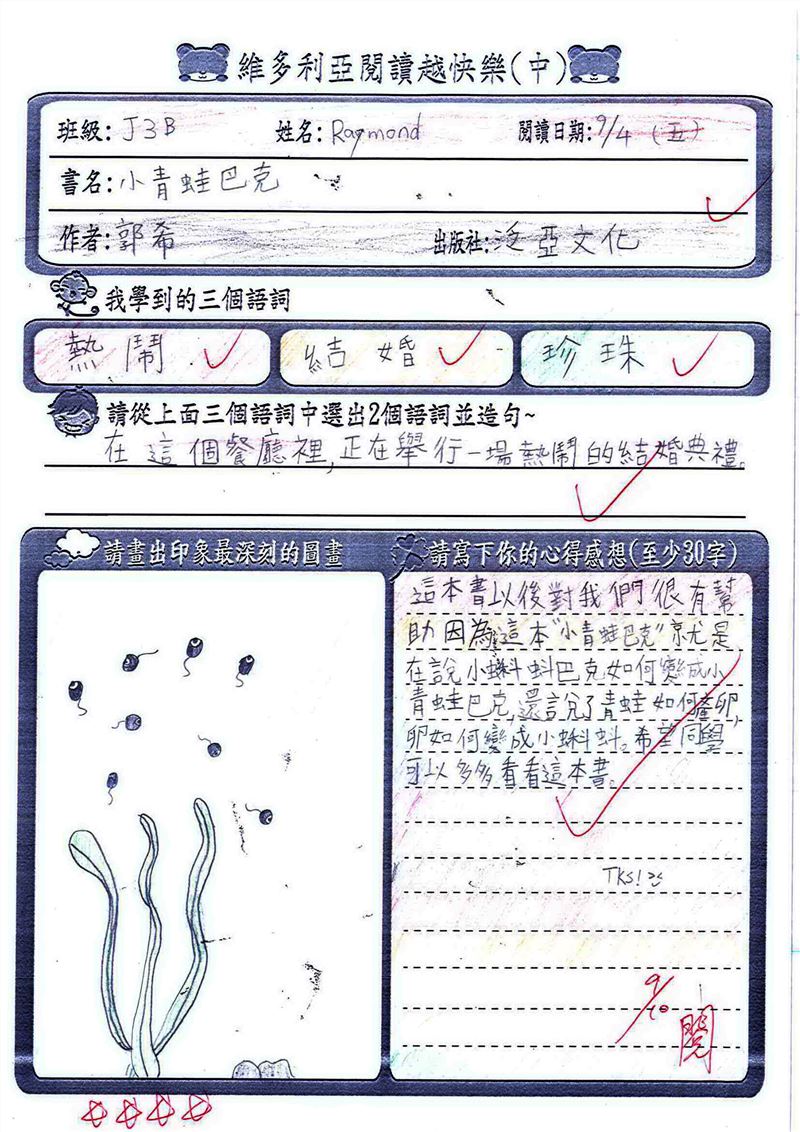 維多利亞閱讀越快樂(中)
班級: J3B 姓名: Raymond 閱讀日期: 9/4 (五)
書名: 小青蛙巴克
作者: 郭希 出版社: 泛亞文化
我學到的三個語詞
熱鬧 結婚 珍珠
請從上面三個語詞中選出2個語詞並造句~
在這個餐廳裡,正在舉行一場熱鬧的結婚典禮。
請畫出印象最深刻的圖畫
請寫下你的心得感想(至少30字)
這本書以後對我們很有幫
助因為這本"小青蛙巴克"就是
在說小蝌蚪巴克如何變成小
青蛙巴克,還說了青蛙如何產卵,
卵如何變成小蝌蚪。希望同學
可以多多看看這本書。
TKS!
9/10 閱